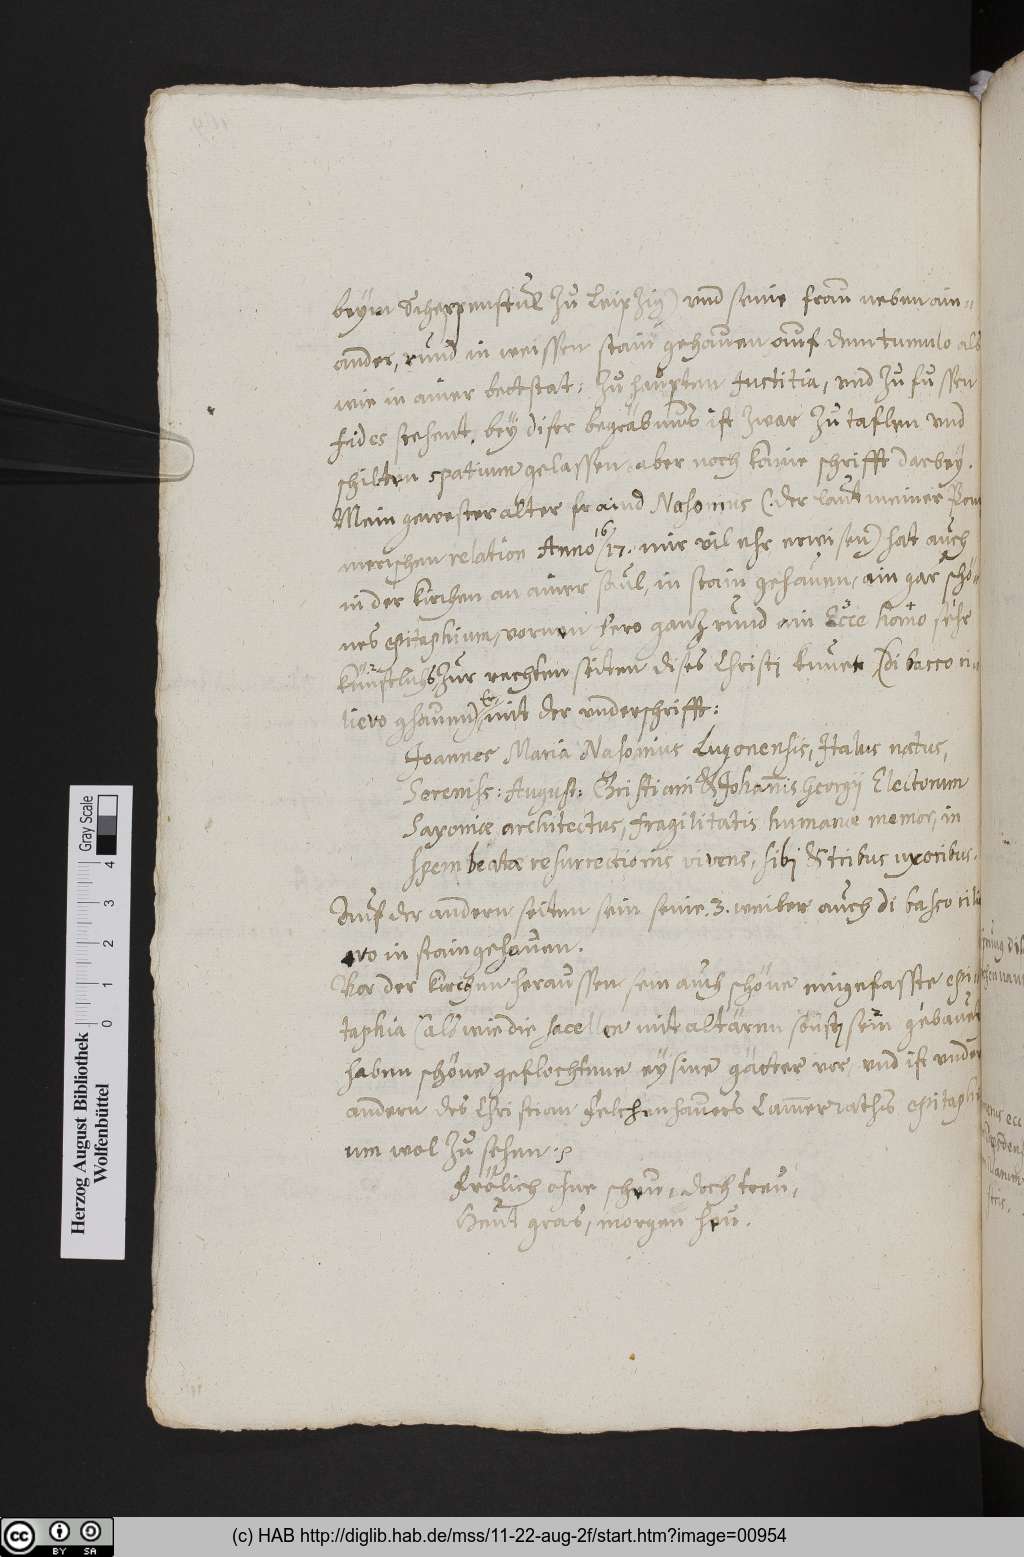 beÿm Scheppenstul Zu Leipzig) vnd seine frau neben ain-
ander, rund in weissen stain gehauen auf dem tumulo als
wie in ainer bettstat: Zu haupten Iustitia, vnd Zu fussen
fides stehent, bey diser begräbnus ist Zwar Zu taflen vnd
schilten spatium gelassen aber noch kaine schrifft darbey.
Mein gewester alter fraind Nasonius (der laut meiner Pom
merischen relation Anno 1617. mir vil ehr erwisen) hat auch
in der kirchen an ainer saul, in stain gehauen, ain gar schö-
nes epitaphium, vornen hero ganz rund ain Ecce homo sehr
künstlich Zur rechten seiten dises Christi kniet (di basso ri
lievo ghauen) Er mit der vnderschrifft:
Joannes Maria Nasonius Lugonensis, Italus natus,
Sereniss: August: Christiani & Johannis Georgij Electorum
Saxoniæ architectus, fragilitatis humanæ memor, in
spem beatæ resurrectionis vivens, sibi & tribus uxoribus.
Auf der andern seiten sein seine .3. weiber auch di basso rili
evo in stain gehauen.
Vor der kirchen heraussen sein auch schöne eingefasste epi-
taphia (als wie die sacellen mit altären sonst sein gebauet
haben schöne geflochtene eysine gätter vor, vnd ist vnder
andern des Christian Felchenhauers Cammerraths epitaphi
um wol Zu sehen.
Frölich ohne schew, doch treu,
Heut gras, morgen heu.
Herzog August Bibliothek
Wolfenbüttel
Gray Scale
0 1 2 3 4
cc BY SA
(c) HAB http://diglib.hab.de/mss/11-22-aug-2f/start.htm?image=00954